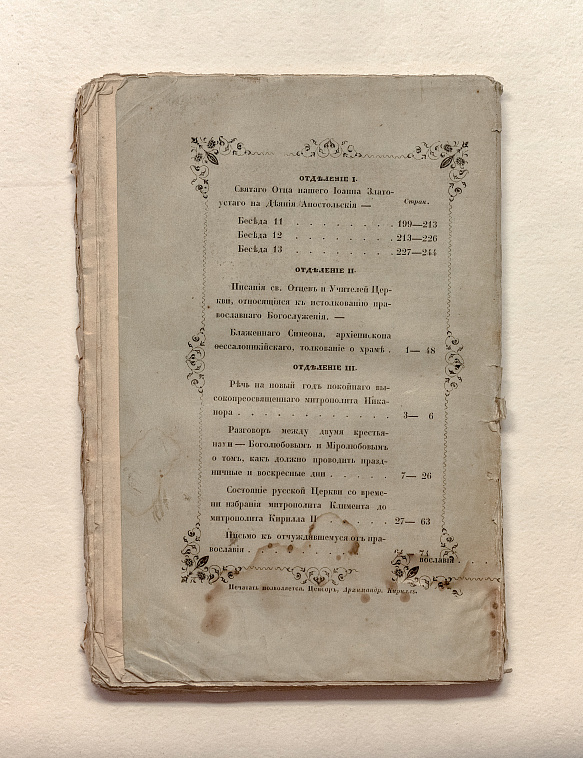 ОТДѢЛЕНІЕ I.
Святаго Отца нашего Іоанна Злато-
устаго на Дѣянія Апостольскія —
Стран.
Бесѣда 11 . . . . . . . . 199—213
Бесѣда 12 . . . . . . . . 213—226
Бесѣда 13 . . . . . . . . 227—244
ОТДѢЛЕНІЕ II.
Писанія св. Отцевъ и Учителей Цер-
кви, относящіяся къ истолкованію пра-
вославнаго Богослуженія. —
Блаженнаго Симеона, архіепископа
Ѳессалоникійскаго, толкованіе о храмѣ . 1— 48
ОТДѢЛЕНІЕ III.
Рѣчь на новый годъ покойнаго вы-
сокопреосвященнаго митрополита Ника-
нора . . . . . . . . . . . . 3— 6
Разговоръ между двумя крестья-
нами — Боголюбовымъ и Міролюбовымъ
о томъ, какъ должно проводить празд-
ничные и воскресные дни . . . . . 7— 26
Состояніе русской Церкви со време-
ни избранія митрополита Климента до
митрополита Кирилла II . . . . . 27— 63
Письмо къ отчуждившемуся отъ пра-
вославія . . . . . . . . — 74
вославія . . .
Печатать позволяется. Цензоръ, Архимандр. Кириллъ.